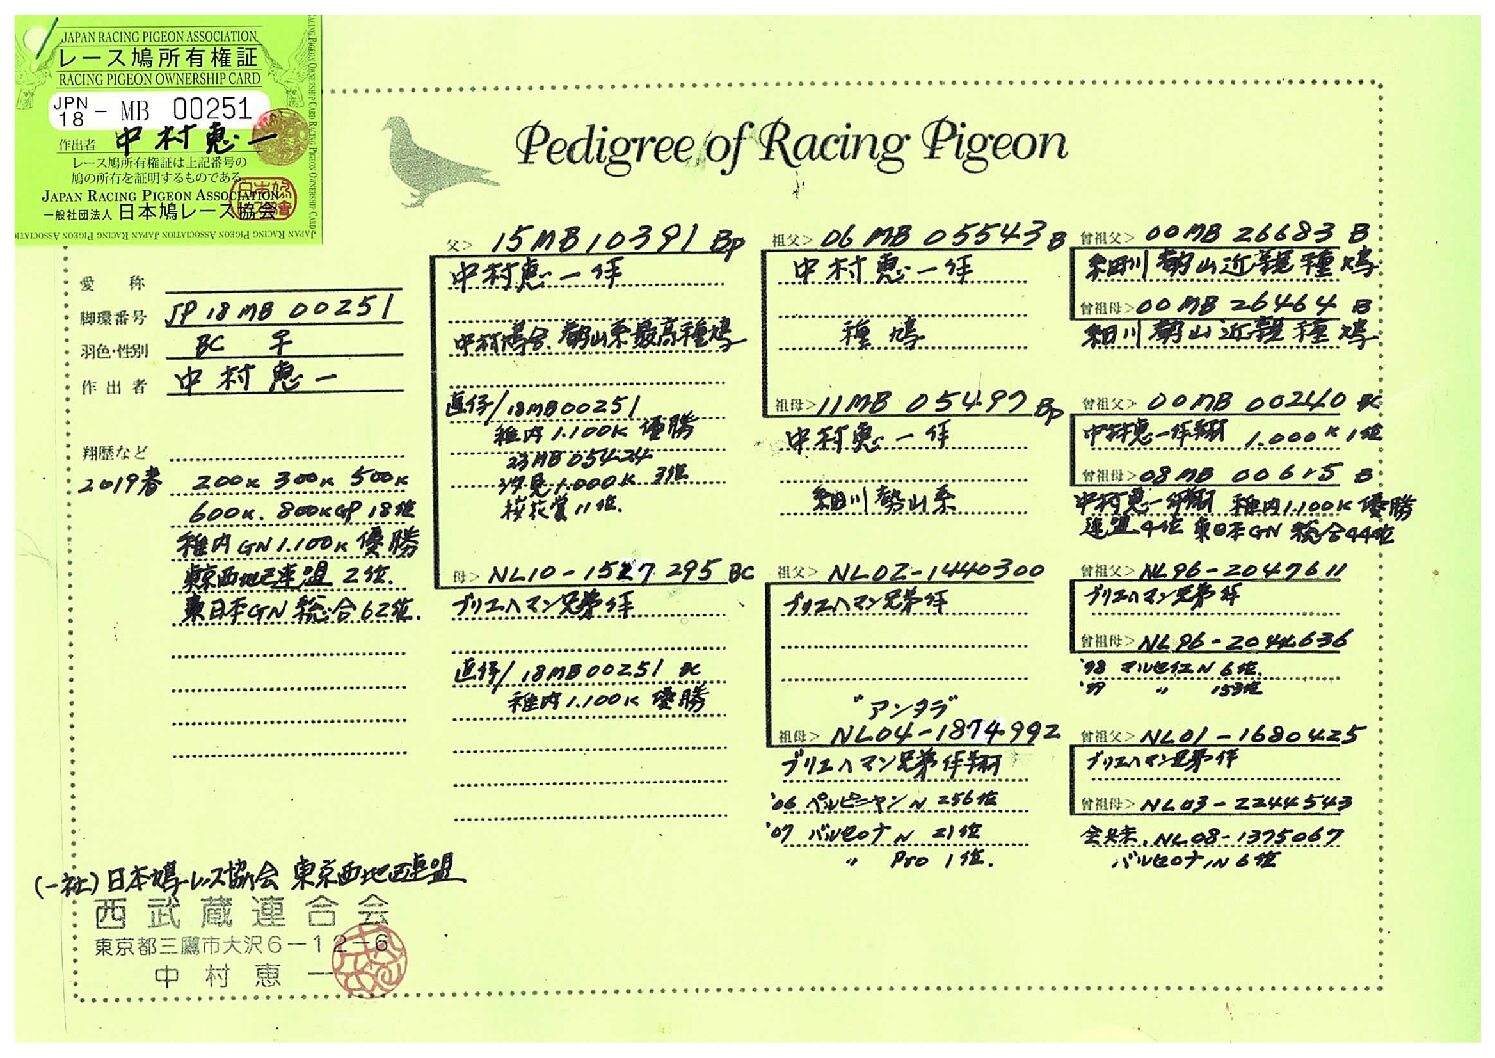 JAPAN RACING PIGEON ASSOCIATION
レース鳩所有権証
RACING PIGEON OWNERSHIP CARD
JPN 18 - MB 00251
作出者 中村惠一
レース鳩所有権証は上記番号の
鳩の所有を証明するものである
JAPAN RACING PIGEON ASSOCIATION
一般社団法人 日本鳩レース協会
Pedigree of Racing Pigeon
愛称
脚環番号 JP 18 MB 00251
羽色・性別 BC ♀
作出者 中村惠一
翔歴など
2019春 200K 300K 500K
600K. 800KGP 18位
稚内GN 1.100K 優勝
東京西地区連盟 2位.
東日本GN 総合62位.
父> 15MB10391 BP
中村惠一作
直仔/18MB00251
稚内1.100K 優勝
23MB05424
汐見1.000K 3位
桜花賞11位.
母> NL10-1527295 BC
ブリエハマン兄弟作
直仔/18MB00251 BC
稚内1.100K 優勝
祖父> 06 MB 05543 B
中村惠一作
種鳩
祖母> 11MB 05497 BP
中村惠一作
細川勢山系
祖父> NL02-1440300
ブリエハマン兄弟作
"アンタラ"
祖母> NL04-1874992
ブリエハマン兄弟作翔
'06 ペルピニャンN 256位
'07 バルセロナN 21位
〃 Pro 1位.
曾祖父> 00MB 26683 B
細川勢山近親種鳩
曾祖母> 00MB 26464 B
細川勢山近親種鳩
曾祖父> 00MB 00240 BC
中村惠一作翔 1.000K 1位
曾祖母> 08MB 00615 B
中村惠一作翔 稚内1.100K優勝
連盟4位 東日本GN 総合44位
曾祖父> NL96-2047611
ブリエハマン兄弟作
曾祖母> NL96-2044636
'98 マルセイエN 6位.
'99 〃 153位
曾祖父> NL01-1680425
ブリエハマン兄弟作
曾祖母> NL03-2244543
NL08-1375067
バルセロナN 6位
(一社)日本鳩レース協会 東京西地区連盟
西武蔵連合会
東京都三鷹市大沢6-12-6
中村惠一